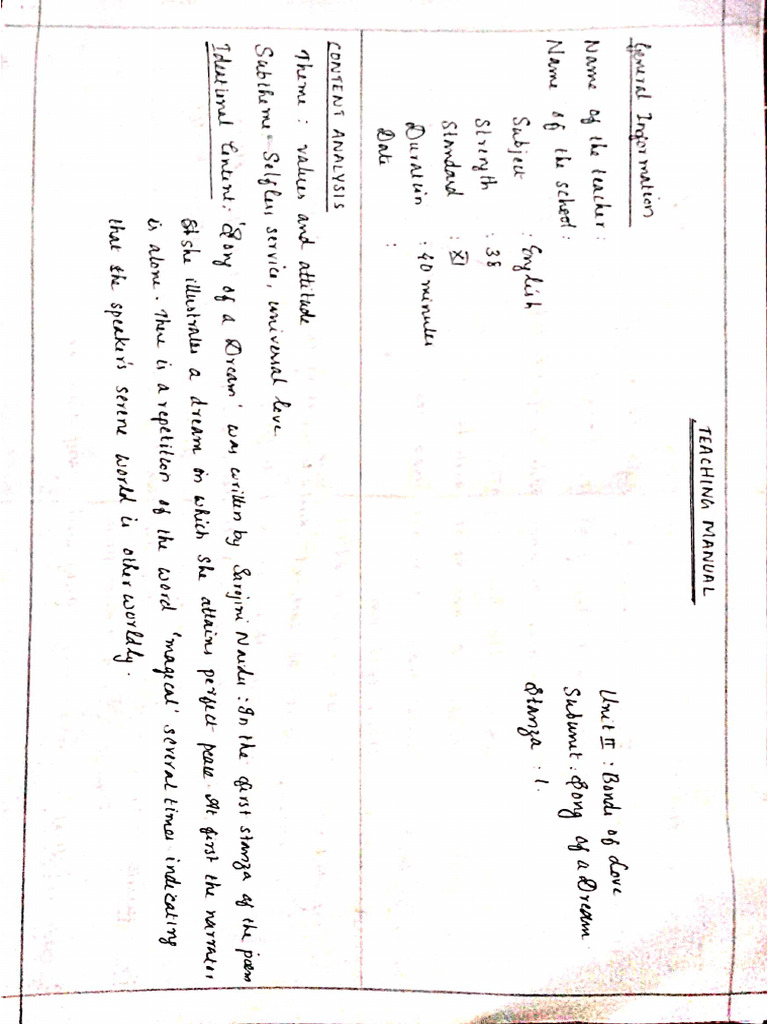 TEACHING MANUAL
General Information
Name of the teacher :
Name of the school :
Subject : English
Strength : 38
Standard : XI
Duration : 40 minutes
Date :
Unit II : Bonds of Love
Subunit : Song of a Dream
Stanza : 1.
CONTENT ANALYSIS
Theme : values and attitude
Subtheme - Selfless service, universal love
Ideational Content : 'Song of a Dream' was written by Sarojini Naidu : In the first stanza of the poem
she illustrates a dream in which she attains perfect peace. At first the narrator
is alone. There is a repetition of the word 'magical' several times indicating
that the speaker's serene world is other worldly.